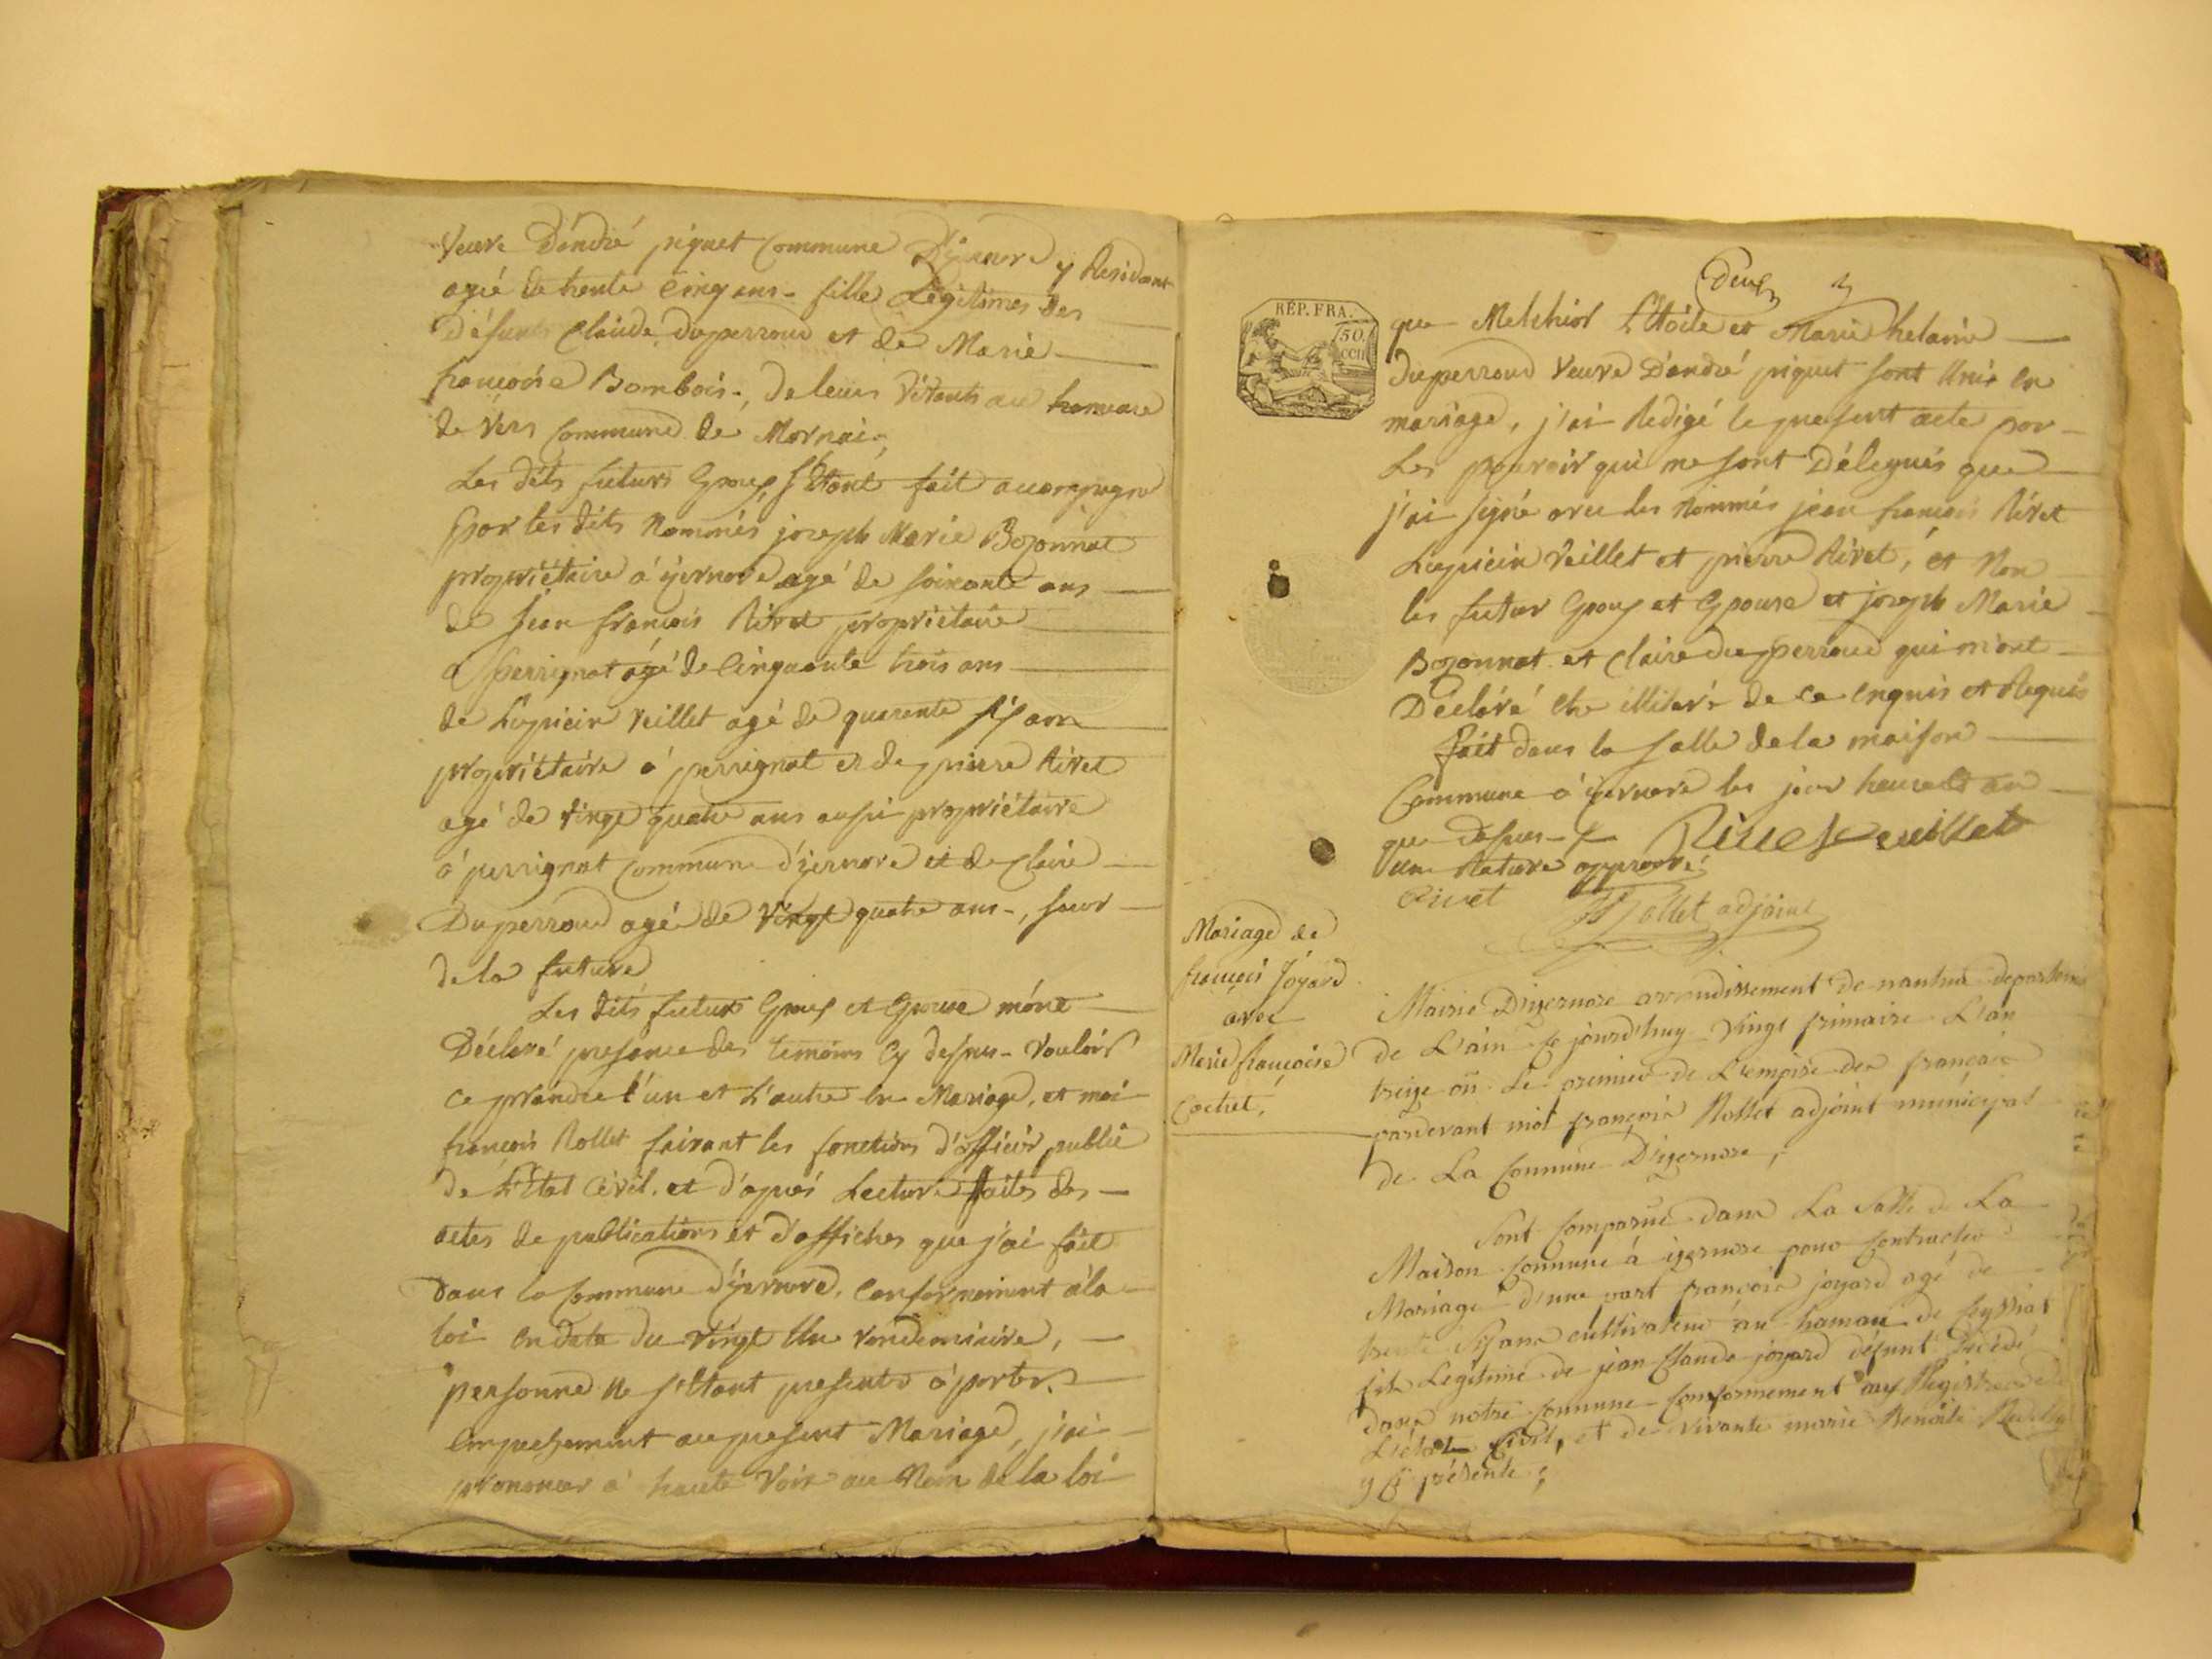 Veuve D'André piquet Commune D'yzernore y Residant
agé de trente Cinq ans - fille Légitimes des
Défunts Claude duperroud et de Marie
françoise Bombois -, de leurs Vivants au hameau
de Vers Commune de Mornai -,
Les dits futurs Epoux S'Etant fait accompagné
par les dits Nommés joseph Marie Bozonnat
propriétaire à yzernore agé de soixante ans
de Jean François Rivet propriétaire
a perrignat agé de Cinquante trois ans
de Lupicin Veillet agé de quarente six ans
propriétaire à perrignat et de pierre Rivet
agé de vingt quatre ans aussi propriétaire
à perrignat Commune d'yzernore et de Claire
Duperroud agée de Vingt quatre ans -, sœur
de la future
Les dits futurs Epoux et Epouse m'ont
Déclaré presence des temoins Cy dessus - Vouloir
ce prendre l'un et L'autre en Mariage, et moi
françois Rollet faisant les fonctions d'officier public
de L'Etat Civil. et d'après Lecture faites des
actes de publications et d'affiches que j'ai fait
dans la Commune d'yzernore, Conformement à la
loi en date du vingt Un Vendemiaire,
personne ne s'Etant presenté à porter
Empechement au present Mariage, j'ai
prononcer à haute Voix au Nom de la loi
deux
RÉP. FRA.
50.
CEN
que Melchior L'Etoile et Marie helaine
Duperroud Veuve D'André piquet sont Unis en
mariage, j'ai Redigé le present acte par
Les pouvoir qui me sont Délegués que
j'ai signé avec les Nommés jean françois Rivet
Lupicin Veillet et pierre Rivet, et Non
les futur Epoux et Epouse et joseph Marie
Bozonnat et Claire duperroud qui m'ont
Declaré Etre illiteré de ce Enquis et Requis
fait dans la salle de la maison
Commune à yzernore les jour heure et an
que dessus - Rivet veuillet
une Rature approuvé
Rivet Rollet adjoint
Mariage de
françois Joyard
avec
Marie françoise
Cochet,
Mairie D'izernore arrondissement de nantua departeme
de L'ain Ce jourd'huy Vingt frimaire L'an
treize ou Le premier de L'empire des français
pardevant moi françois Rollet adjoint municipal
de La Commune D'izernore,
Sont Comparue dans La Salle de La
Maison Commune à izernore pour Contracter
Mariage d'une part françois joyard agé de
trente Six ans cultivateur au hamau de Ceyssiat
fils Legitime de jean Claude joyard défunt décédé
dans notre Commune Conformement aux Registre de
L'état Civil, et de vivante marie Benoite
y Ci présente ;